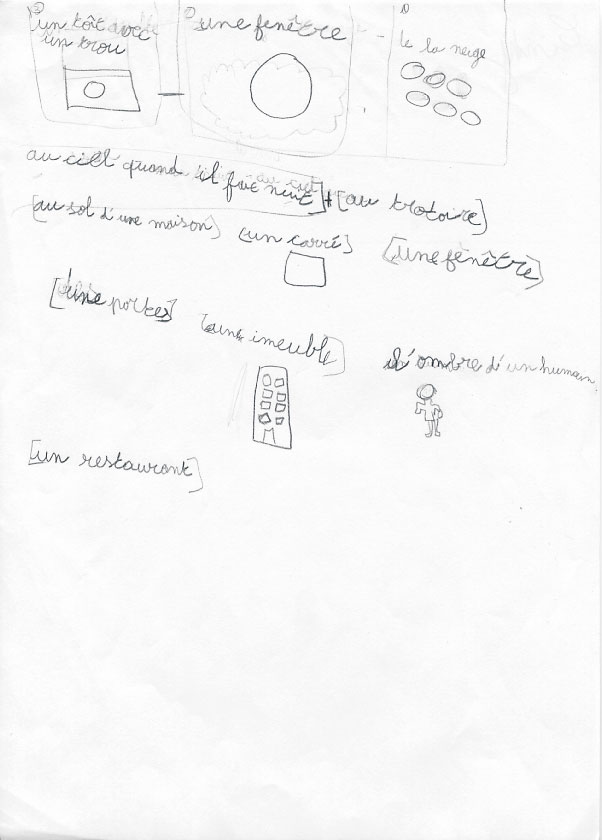 un toît avec
un trou
une fenêtre
de la neige
au ciel quand il fait nuit
[au trotoire]
[au sol d'une maison]
[un carré]
[une fenêtre]
[une portes]
[une imeuble]
d'ombre d'un humain
[un restaurant]